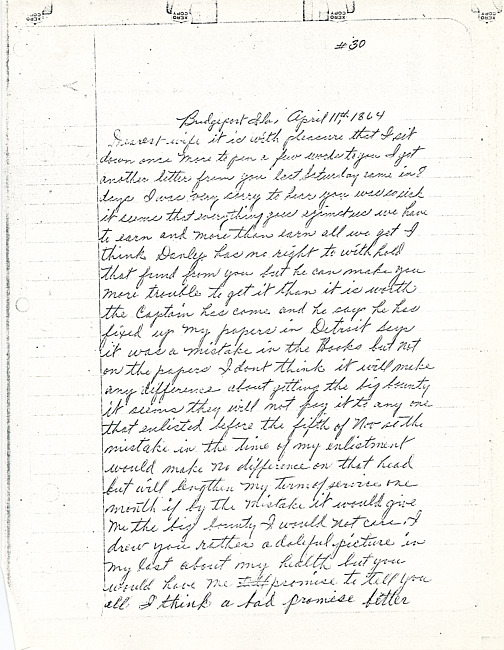 #30
Bridgeport Ala, April 11th, 1864
Dearest wife it is with pleasure that I sit
down once more to pen a few words to you I got
another letter from you last Saturday came in 7
days I was very sorry to hear you was so sick
it seems that everything goes against us we have
to earn and more than earn all we get I
think Danly has no right to withhold
that fund from you but he can make you
more trouble to get it than it is worth
the Captain has come and he says he has
fixed up my papers in Detroit says
it was a mistake in the Books but not
on the papers I dont think it will make
any difference about getting the big bounty
it seems they will not pay it to any one
that enlisted before the fifth of Nov so the
mistake in the time of my enlistment
would make no difference on that head
but will lengthen my term of service one
month if by the mistake it would give
me the big bounty I would not care. I
drew you rather a doleful picture in
my last about my health but you
would have me promise to tell you
all I think a bad promise better